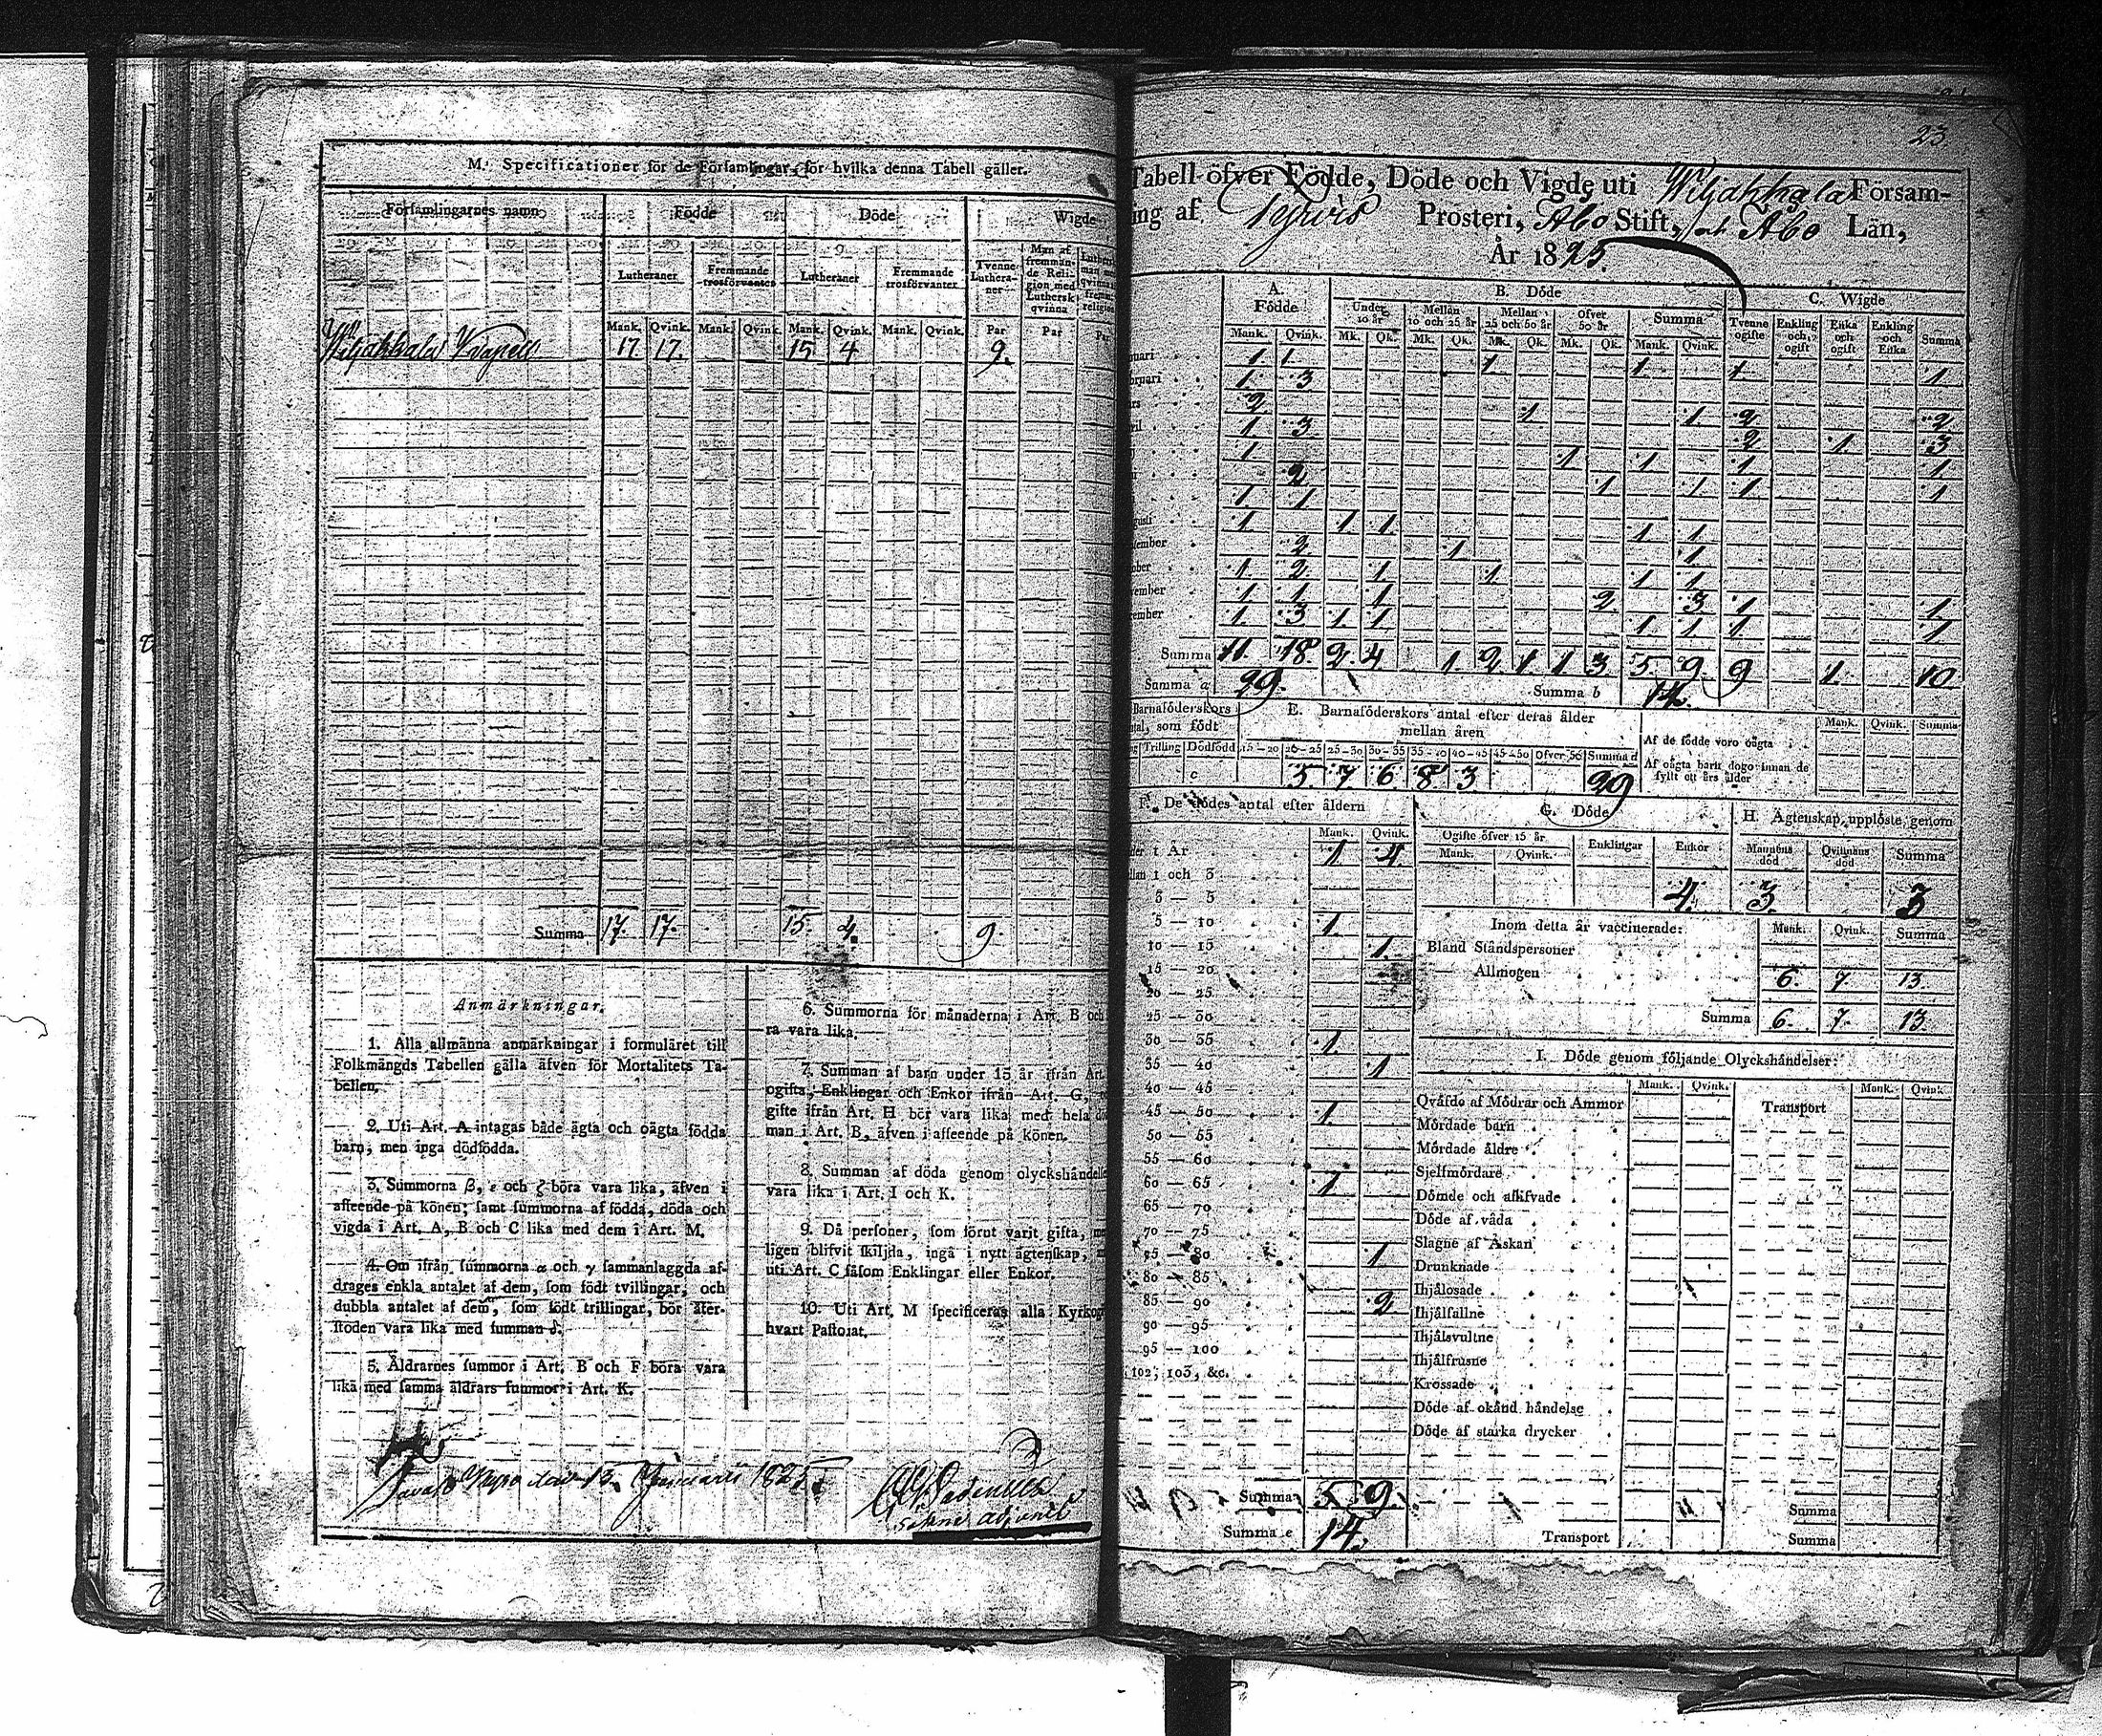 M. Specificationer för de Församlingar, för hvilka denna Tabell gäller.
Församlingarnes namn Födde Döde Wigde
Lutheraner Fremmande trosförvanter Lutheraner Fremmande trosförvanter Tvenne Lutheraner Man af fremmande Religion med Luthersk qvinna
Mank. Qvink. Mank. Qvink. Mank. Qvink. Mank. Qvink. Par Par
Wiljakkala Kapell 17 17. 15 4 9.
Summa 17. 17. 15. 4. 9
Anmärkningar.
1. Alla allmänna anmärkningar i formuläret till
Folkmängds Tabellen gälla äfven för Mortalitets Ta-
bellen.
2. Uti Art. A intagas både ägta och oägta födda
barn, men inga dödfödda.
3. Summorna β, ε och ζ böra vara lika, äfven i
afseende på könen; samt summorna af födda, döda och
vigda i Art. A, B och C lika med dem i Art. M.
4. Om ifrån summorna α och γ sammanlaggda af-
drages enkla antalet af dem, som födt tvillingar, och
dubbla antalet af dem, som födt trillingar, bör åter-
stoden vara lika med summan δ.
5. Åldrarnes summor i Art. B och F böra vara
lika med samma åldrars summor i Art. K.
6. Summorna för månaderna i Art. B och
ra vara lika.
7. Summan af barn under 15 år ifrån Art.
ogifta, Enklingar och Enkor ifrån Art. G,
gifte ifrån Art. H bör vara lika med hela
man i Art. B, äfven i afseende på könen.
8. Summan af döda genom olyckshändelse
vara lika i Art. I och K.
9. Då personer, som förut varit gifta,
ligen blifvit skiljda, ingå i nytt ägtenskap,
uti Art. C såsom Enklingar eller Enkor.
10. Uti Art. M specificeras alla Kyrko
hvart Pastorat.
den 13. Januarii 1825
23.
Tabell öfver Födde, Döde och Vigde uti Wiljakkala Församling
af Tyrvis Prosteri, Åbo Stift, Åbo Län,
År 1825.
A. Födde B. Döde C. Wigde
Under 10 år Mellan 10 och 25 år Mellan 25 och 50 år Öfver 50 år Summa Tvenne ogifte Enkling och ogift Enka och ogift Enkling och Enka Summa
Mank. Qvink. Mk. Qk. Mk. Qk. Mk. Qk. Mk. Qk. Mank. Qvink.
nuari 1 1 1 1 1 1
bruari 1 3
rs 2 1 1 2 2
ril 1 3 2 1 3
1 1 1 1 1
2 1 1 1 1
1 1
gusti 1 1 1 1 1
tember 2 1 1
ober 1 2 1 1 1 1
vember 1 1 1 2 3 1 1
cember 1 3 1 1 1 1 1 1
Summa 11. 18. 2. 4 1. 2. 1. 1. 3. 5. 9. 9 1. 10.
Summa a 29. Summa b 14.
Barnaföderskors
antal, som födt
Trilling Dödfödd
c
E. Barnaföderskors antal efter deras ålder
mellan åren
15-20 20-25 25-30 30-35 35-40 40-45 45-50 Öfver 50 Summa d
5. 7. 6. 8 3 29
Mank. Qvink. Summa
Af de födde voro oägta
Af oägta barn dogo innan de
fyllt ett års ålder
F. De dödes antal efter åldern
Mank. Qvink.
der 1 År 1 4
llan 1 och 3
3 — 5
5 — 10 1.
10 — 15 1.
15 — 20
20 — 25
25 — 30
30 — 35 1.
35 — 40 1
40 — 45
45 — 50 1.
50 — 55
55 — 60
60 — 65 1
65 — 70
70 — 75
75 — 80 1
80 — 85
85 — 90 2
90 — 95
95 — 100
102; 103, &c.
Summa 5. 9.
Summa e 14.
G. Döde
Ogifte öfver 15 år Enklingar Enkor
Mank. Qvink.
4.
H. Ägtenskap upplöste genom
Mannens död Qvinnans död Summa
3. 3
Inom detta år vaccinerade: Mank. Qvink. Summa
Bland Ståndspersoner
— Allmogen 6. 7. 13.
Summa 6. 7. 13.
I. Döde genom följande Olyckshändelser:
Mank. Qvink. Mank. Qvink.
Qväfde af Mödrar och Ammor Transport
Mördade barn
Mördade äldre
Sjelfmördare
Dömde och afskfvade
Döde af våda
Slagne af Åskan
Drunknade
Ihjälosade
Ihjälfallne
Ihjälsvultne
Ihjälfrusne
Krossade
Döde af okänd händelse
Döde af starka drycker
Summa
Transport Summa